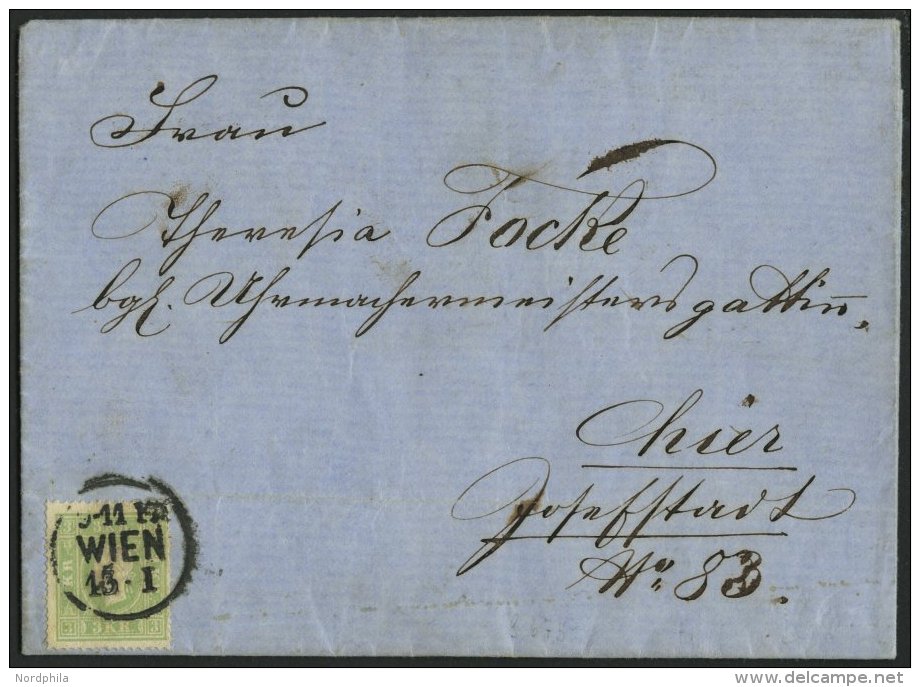 Frau
Theresia Focke
bgl. Uhrmachermeistersgattin,
hier
Josefstadt
No. 83.
WIEN
13. I
3 KR.
Nordphila
www.delcampe.net